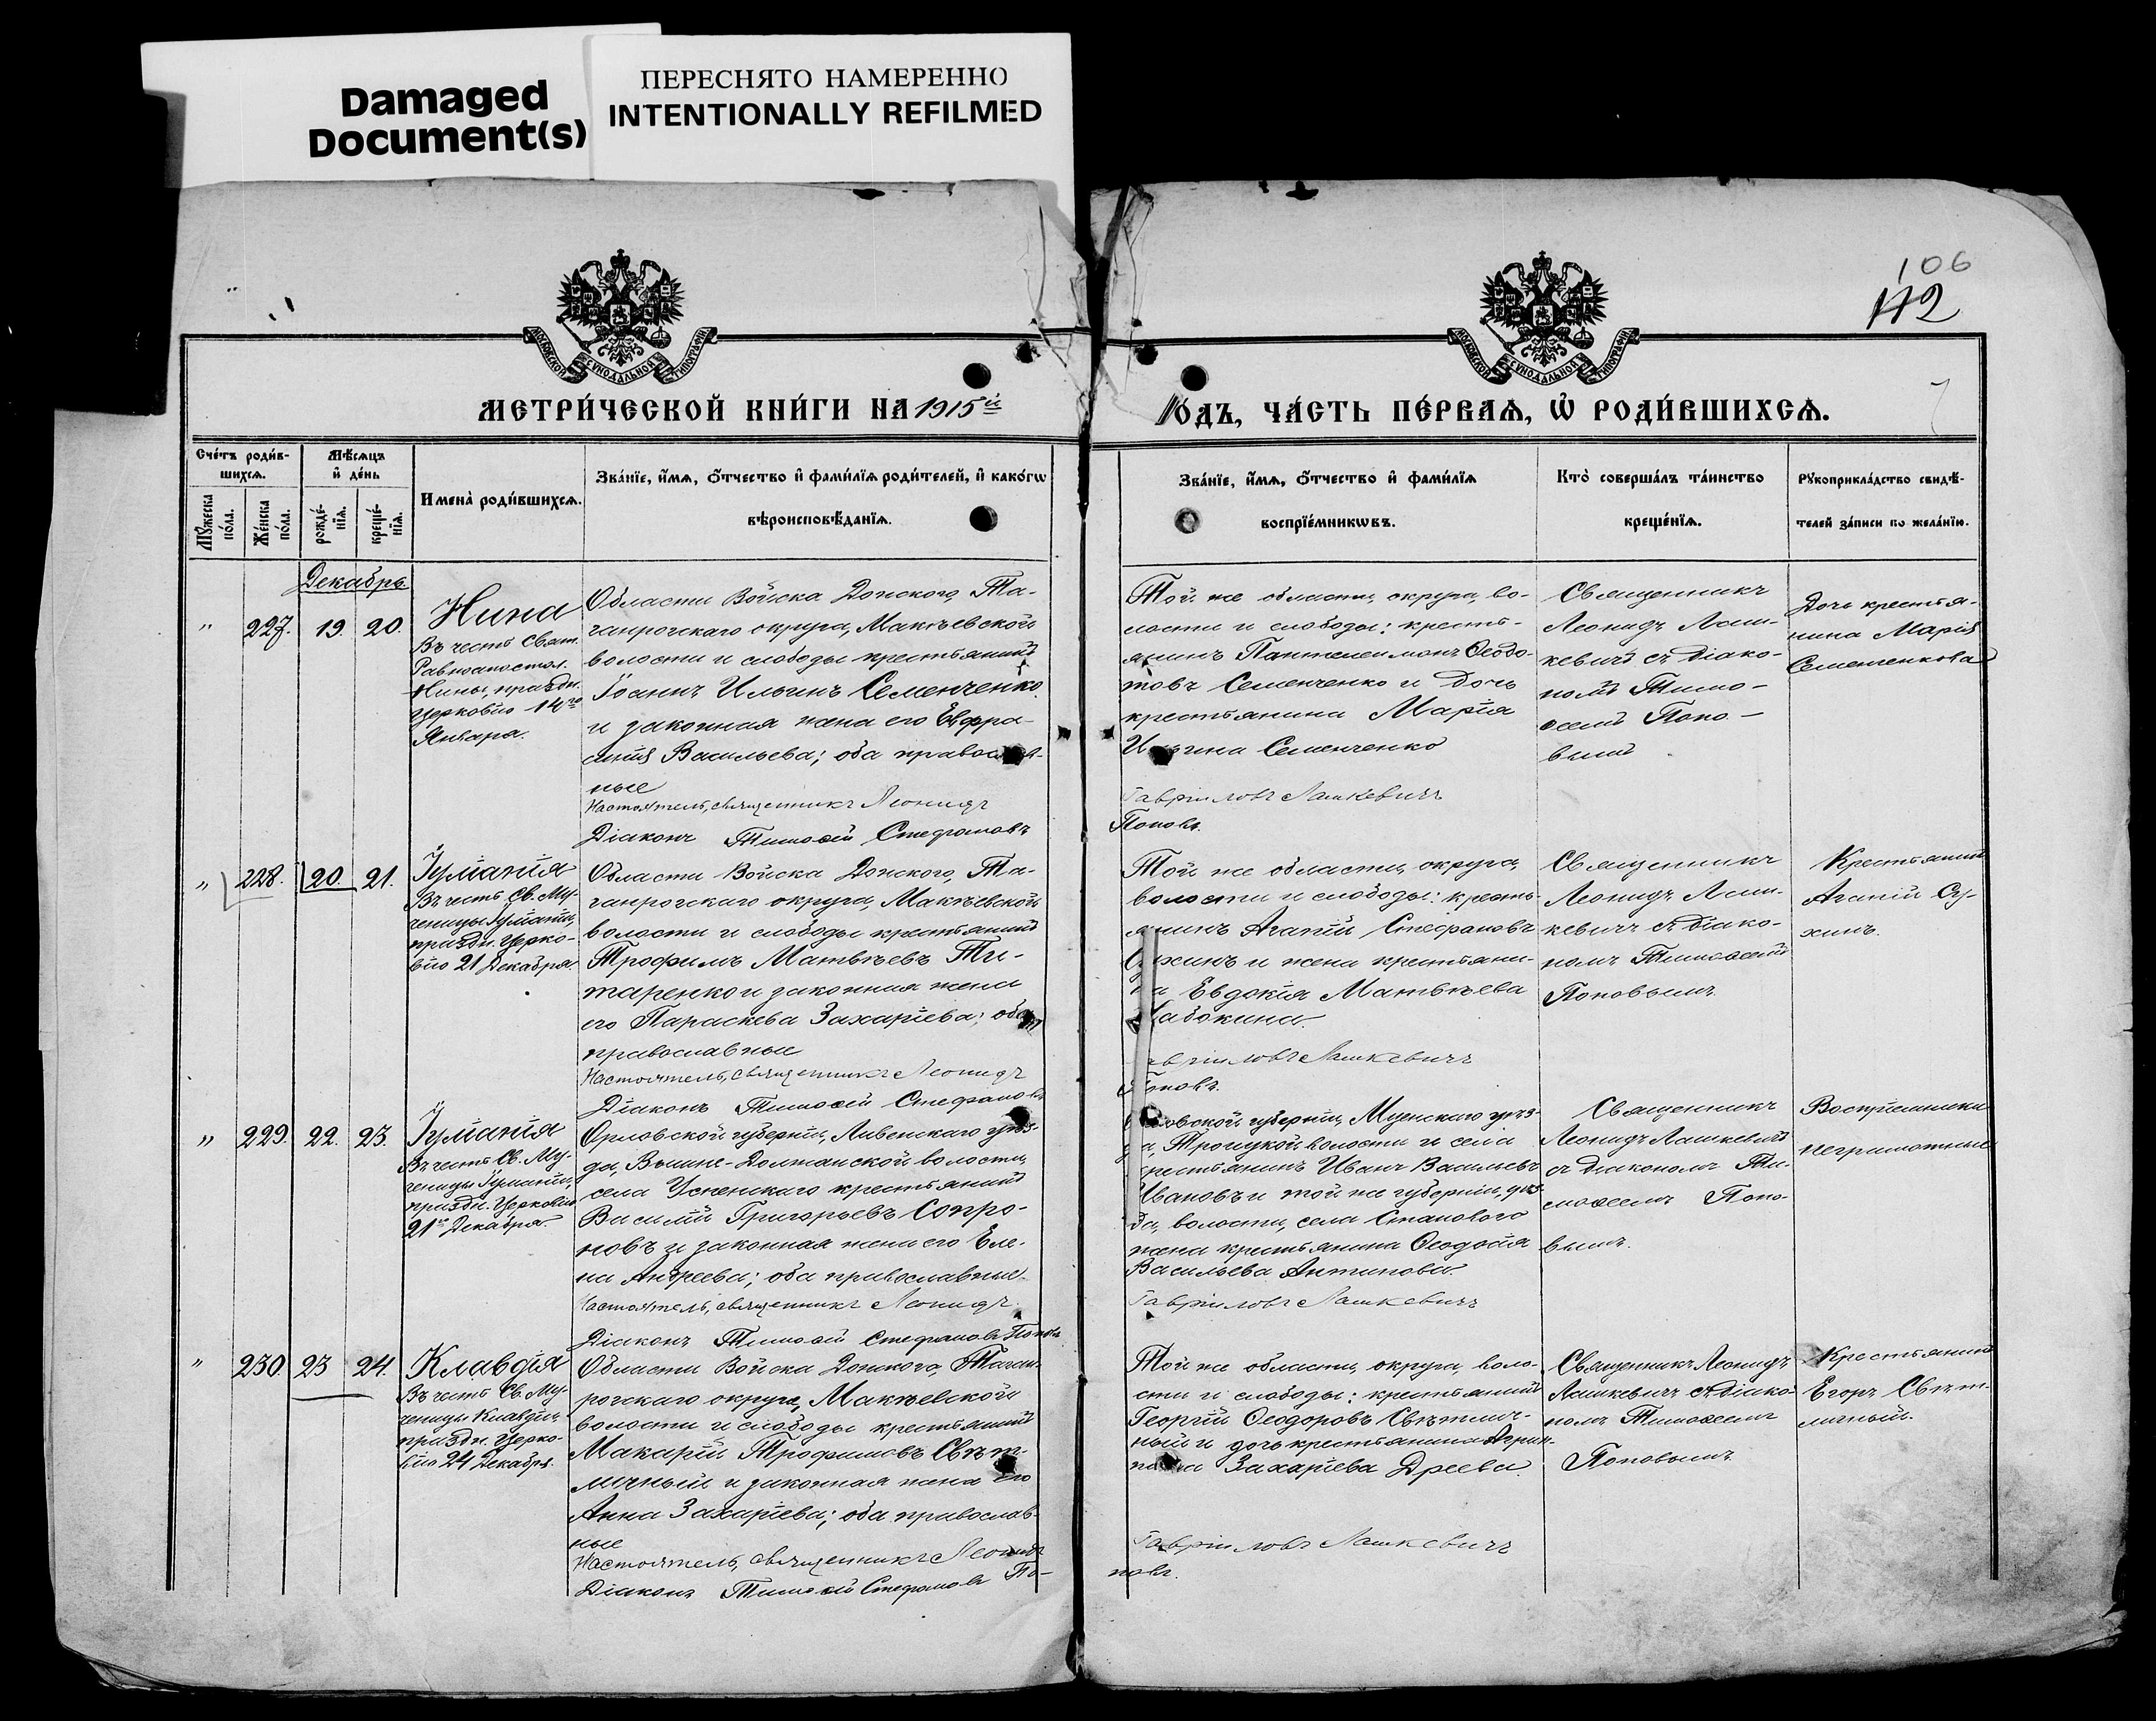 Damaged
Document(s)
ПЕРЕСНЯТО НАМЕРЕННО
INTENTIONALLY REFILMED
106
112
МОСКОВСКОЙ СѴНОДАЛЬНОЙ ТИПОГРАФІИ
МОСКОВСКОЙ СѴНОДАЛЬНОЙ ТИПОГРАФІИ
МЕТРИ́ЧЕСКОЙ КНИ́ГИ НА 1915й
го́дъ, ча́сть пе́рваѧ, ѽ роди́вшихсѧ.
Сче́тъ роди́в-
шихсѧ.
Мѣ́сѧцъ
и҆ де́нь
Мꙋ́жеска
по́ла.
Же́нска
по́ла.
рожде́-
нїѧ.
креще́-
нїѧ.
Имена̀ роди́вшихсѧ.
Зва́нїе, и҆́мѧ, ѻ҆́тчество и҆ фами́лїѧ роди́телей, и҆ како́гѡ
вѣроисповѣ́данїѧ.
Зва́нїе, и҆́мѧ, ѻ҆́тчество и҆ фами́лїѧ
воспрїе́мникѡвъ.
Кто̀ соверша́лъ та́инство
креще́нїѧ.
Рꙋкоприкла́дство свидѣ́-
телей за́писи по жела́нїю.
Декабрь.
" 227. 19. 20.
Нина
Въ честь Свят.
Равноапостол.
Нины, праздн.
Церковію 14го
Января.
Области Войска Донского, Та-
ганрогскаго округа, Макѣевской
волости и слободы крестьянинъ
Іоаннъ Ильинъ Семенченко
и законная жена его Евфра-
синія Васильева; оба православ-
ные
Настоятель, священникъ Леонидъ
Діаконъ Тимоѳей Стефановъ
Той же области, округа, во-
лости и слободы: кресть-
янинъ Пантелеимонъ Ѳеодо-
товъ Семенченко и дочь
крестьянина Марія
Ильина Семенченко
Гавріиловъ Лашкевичъ
Поповъ.
Священникъ
Леонидъ Лаш-
кевичъ съ діако-
номъ Тимо-
ѳеемъ Попо-
вымъ
Дочь крестья-
нина Марія
Семенченкова
" 228. 20. 21.
Іуліанія
Въ честь Св. Му-
ченицы Іуліаніи,
праздн. Церко-
вію 21 Декабря.
Области Войска Донского, Та-
ганрогскаго округа, Макѣевской
волости и слободы крестьянинъ
Трофимъ Матвѣевъ Ти-
таренко и законная жена
его Параскева Захаріева; оба
православные
Настоятель, священникъ Леонидъ
Діаконъ Тимоѳей Стефановъ
Той же области, округа,
волости и слободы: кресть-
янинъ Агапій Стефановъ
Сухинъ и жена крестьяни-
на Евдокія Матвѣева
Гавріиловъ Лашкевичъ
Поповъ.
Священникъ
Леонидъ Лаш-
кевичъ съ діако-
номъ Тимоѳеемъ
Поповымъ.
Крестьянинъ
Агапій Су-
хинъ.
" 229. 22. 23.
Іуліанія
Въ честь Св. Му-
ченицы Іуліаніи,
праздн. Церковію
21го Декабря
Орловской губерніи, Ливенскаго уѣз-
да, Вышне-Должанской волости,
села Успенскаго крестьянинъ
Василій Григорьевъ Сопро-
новъ и законная жена его Еле-
на Андреева; оба православные.
Настоятель, священникъ Леонидъ
Діаконъ Тимоѳей Стефановъ Поповъ
Орловской губерніи, Мценскаго уѣз-
да, Троицкой волости и села
крестьянинъ Иванъ Васильевъ
Ивановъ и той же губерніи, уѣз-
да, волости, села Станового
жена крестьянина Ѳеодосія
Васильева Антипова.
Гавріиловъ Лашкевичъ
Священникъ
Леонидъ Лашкевичъ
съ діакономъ Ти-
моѳеемъ Попо-
вымъ.
Воспріемники
неграмотные
" 230. 23 24.
Клавдія
Въ честь Св. Му-
ченицы Клавдіи,
праздн. Церко-
вію 24 Декабря.
Области Войска Донского, Таган-
рогскаго округа, Макѣевской
волости и слободы крестьянинъ
Макарій Трофимовъ Свѣт-
личный и законная жена его
Анна Захаріева; оба православ-
ные
Настоятель, священникъ Леонидъ
Діаконъ Тимоѳей Стефановъ По-
Той же области, округа, воло-
сти и слободы: крестьянинъ
Георгій Ѳеодоровъ Свѣтлич-
ный и дочь крестьянина Агрип-
пина Захаріева Дреева.
Гавріиловъ Лашкевичъ
повъ.
Священникъ Леонидъ
Лашкевичъ съ діако-
номъ Тимоѳеемъ
Поповымъ
Крестьянинъ
Егоръ Свѣт-
личный.